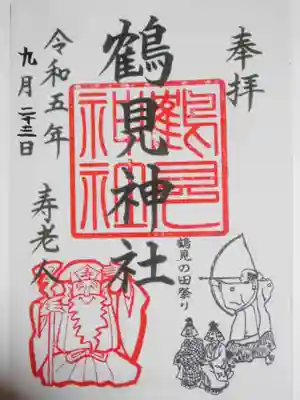 奉拝
鶴見神社
鶴見神社
鶴見の田祭り
令和五年
九月二十三日
寿老人